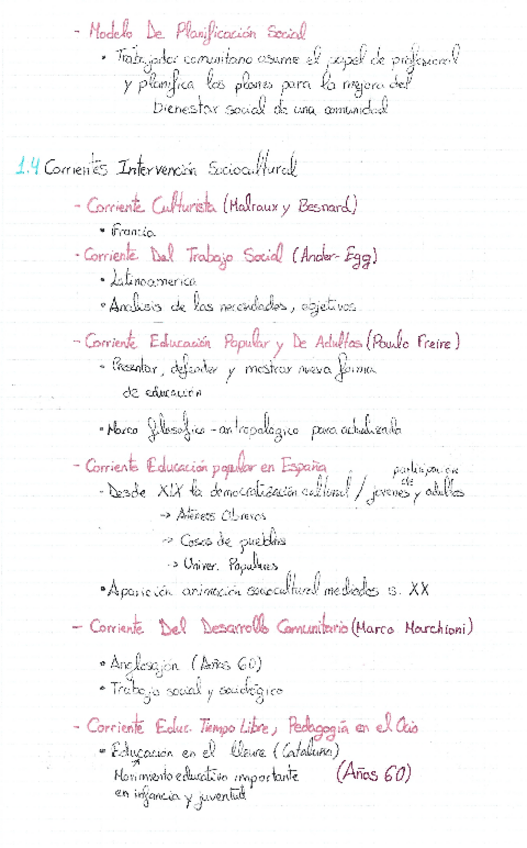 - Modelo De Planificación Social
• Trabajador comunitario asume el papel de profesional
y planifica los planes para la mejora del
Bienestar social de una comunidad
1.4 Corrientes Intervención Sociocultural
- Corriente Culturista (Malraux y Besnard)
• Francia
- Corriente Del Trabajo Social (Ander-Egg)
• Latinoamerica
• Analisis de las necesidades, objetivos
- Corriente Educación Popular y De Adultos (Paulo Freire)
• Presentar, defender y mostrar nueva forma
de educación
• Marco filosofico-antropologico para actualizarla
- Corriente Educación popular en España
- Desde XIX la democratización cultural / participación de jovenes y adultos
→ Ateneos Obreros
→ Casas de pueblos
→ Univer. Populares
• Aparición animación sociocultural mediados s. XX
- Corriente Del Desarrollo Comunitario (Marco Marchioni)
• Anglosajón (Años 60)
• Trabajo social y sociológico
- Corriente Educ. Tiempo Libre, Pedagogía en el Ocio
• Educación en el lleure (Cataluña)
Movimiento educativo importante (Años 60)
en infancia y juventud